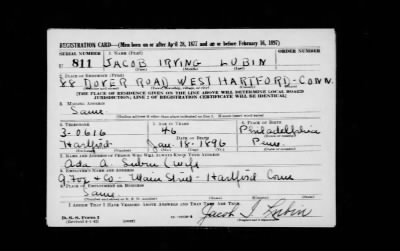 REGISTRATION CARD—(Men born on or after April 28, 1877 and on or before February 16, 1897)
SERIAL NUMBER 1. NAME (Print) ORDER NUMBER
U 811 JACOB IRVING LUBIN
(First) (Middle) (Last)
2. PLACE OF RESIDENCE (Print)
88 DOVER ROAD WEST HARTFORD-CONN.
[THE PLACE OF RESIDENCE GIVEN ON THE LINE ABOVE WILL DETERMINE LOCAL BOARD
JURISDICTION; LINE 2 OF REGISTRATION CERTIFICATE WILL BE IDENTICAL]
3. MAILING ADDRESS
Same
4. TELEPHONE 5. AGE IN YEARS 6. PLACE OF BIRTH
3-0616 46 Philadelphia
DATE OF BIRTH
Hartford Jan-18-1896 Penn.
7. NAME AND ADDRESS OF PERSON WHO WILL ALWAYS KNOW YOUR ADDRESS
Ada A. Lubin (wife)
8. EMPLOYER'S NAME AND ADDRESS
G. Fox & Co - Main Street - Hartford Conn
9. PLACE OF EMPLOYMENT OR BUSINESS
Same
I AFFIRM THAT I HAVE VERIFIED ABOVE ANSWERS AND THAT THEY ARE TRUE.
D. S. S. Form 1
Jacob I. Lubin